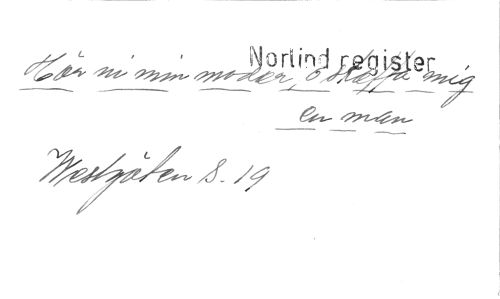 Norlind register
Hör ni min moder, o skaffa mig
en man
Westgöten S. 19